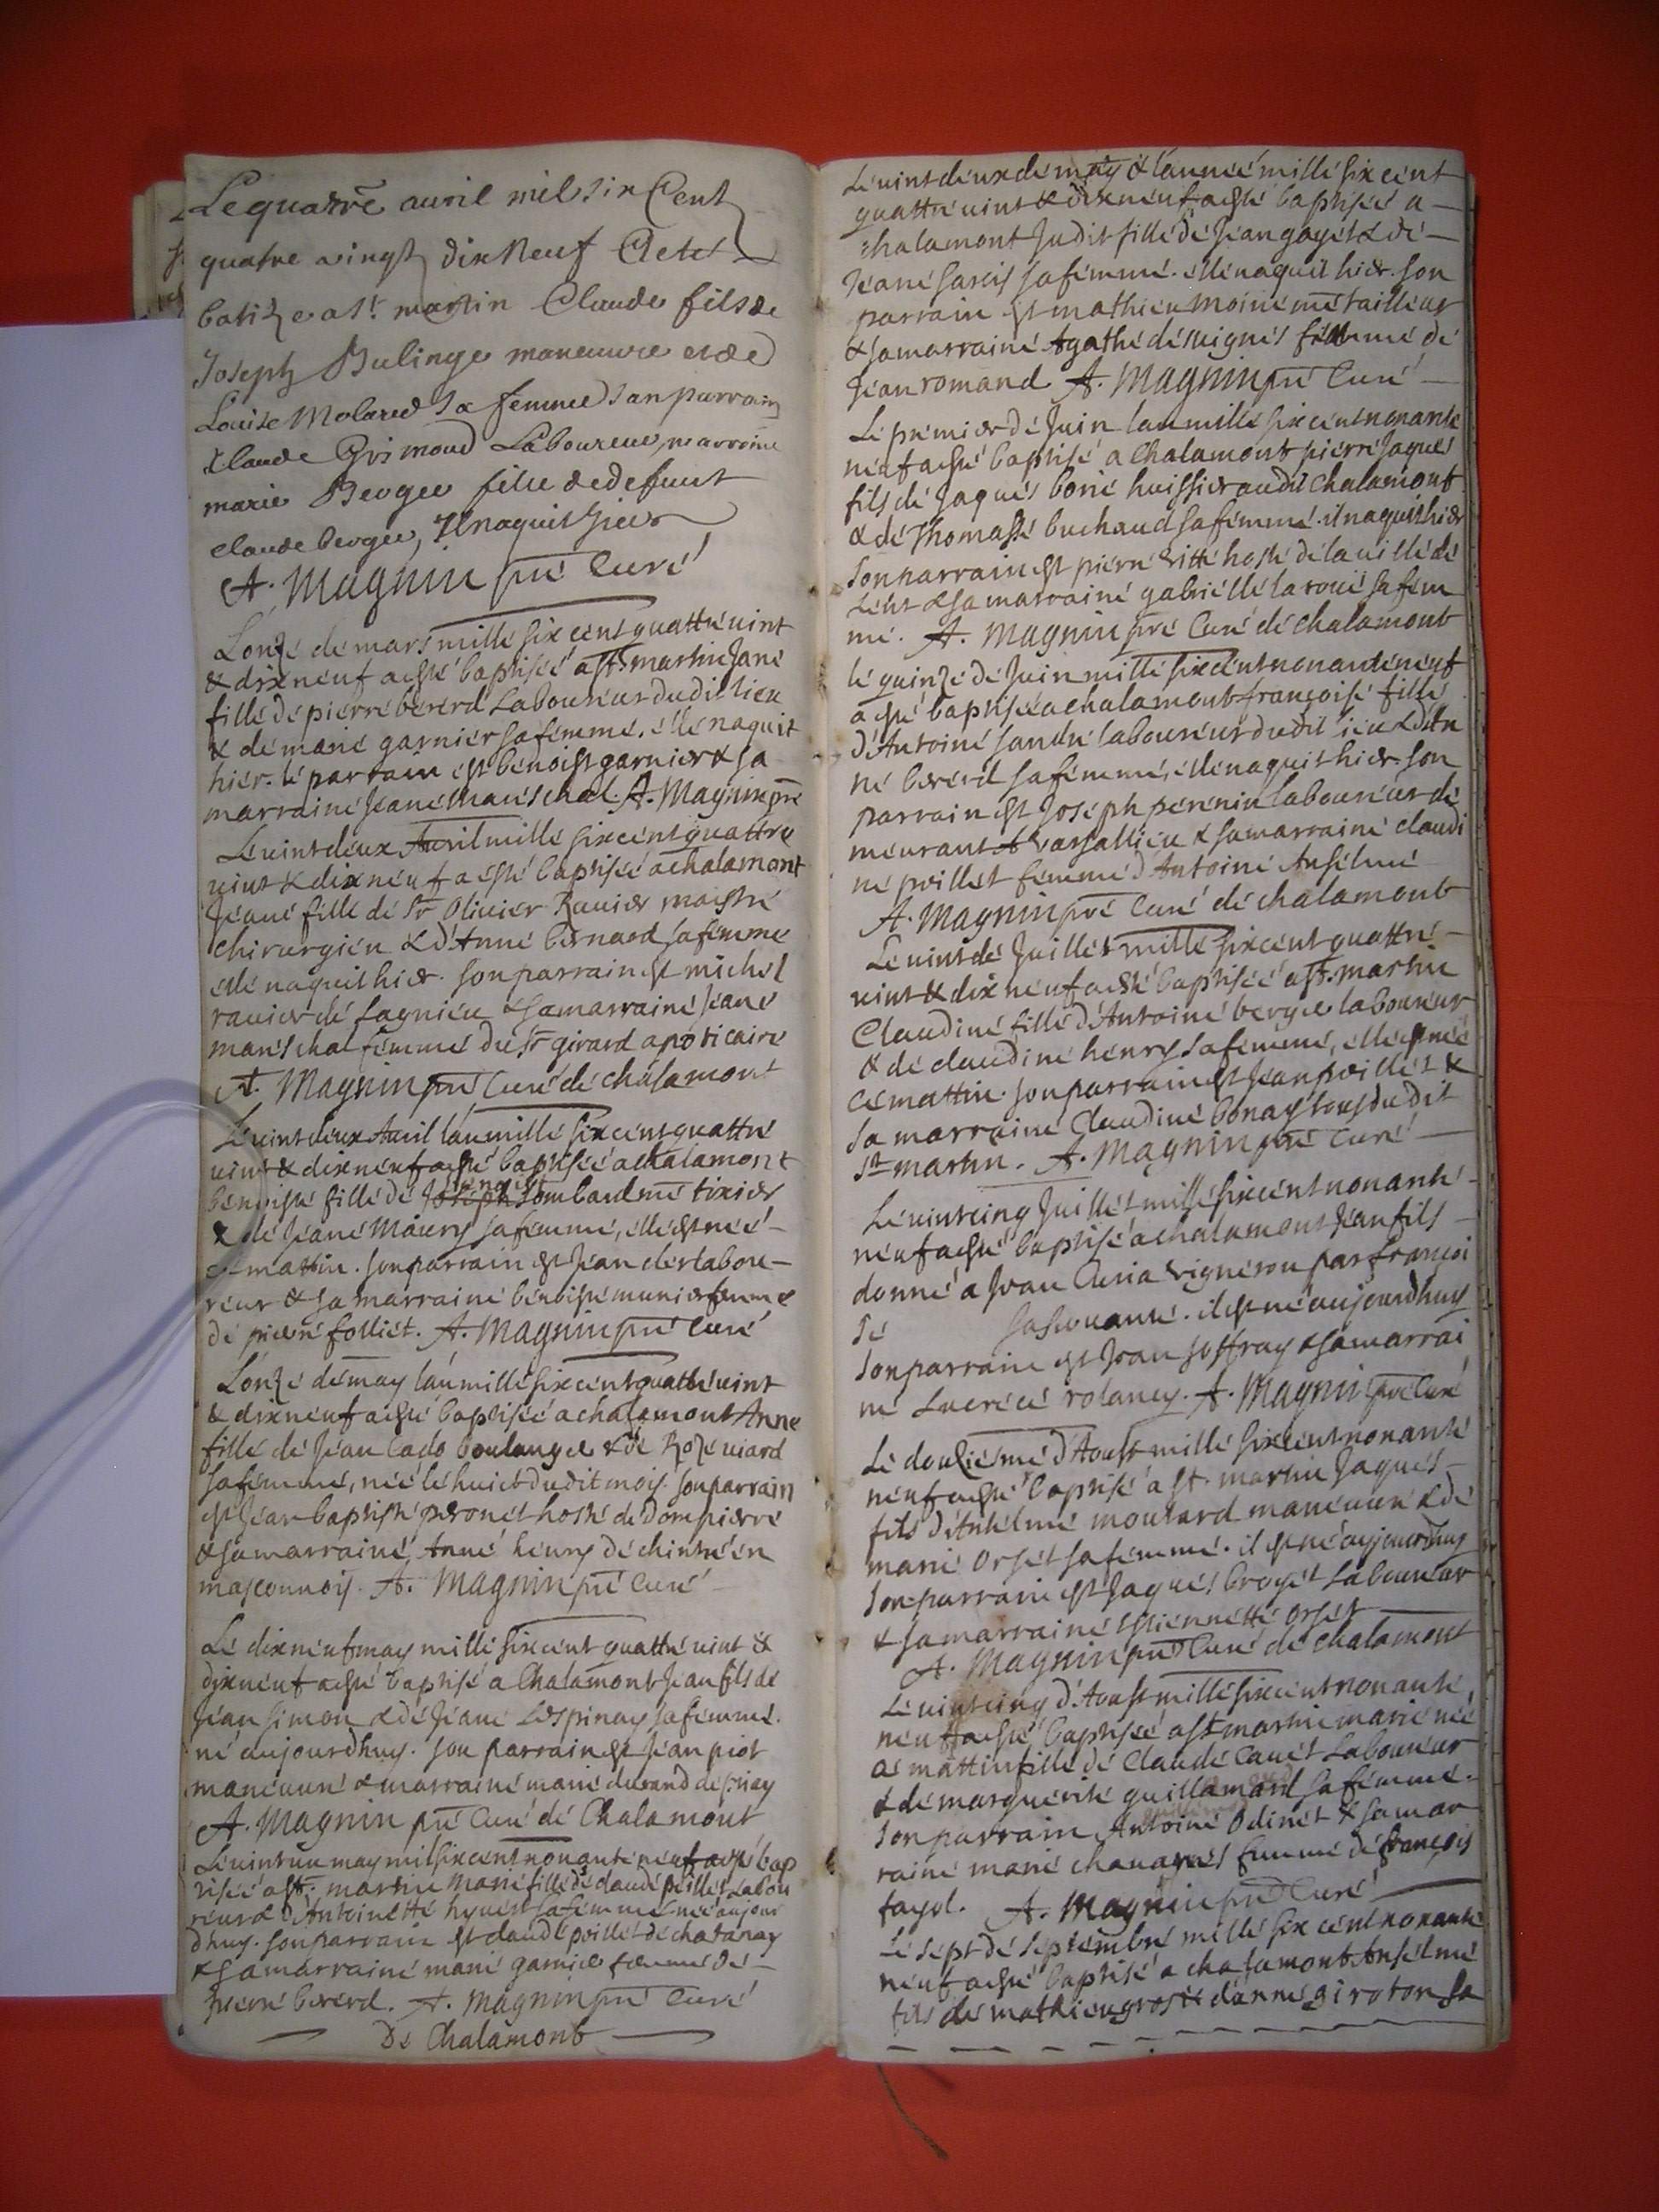 Le quatre avril mil six Cent
quatre vingt dix Neuf a esté
batize a st. martin Claude fils de
Joseph Bulinge maneuvre et de
Louise Molared sa femme son parrain
Claude Grimoud Laboureur, marraine
marie Berger fille de defunt
claude berger, Il naquit hier
A. Magnin pre Curé
L'onze de mars mille six cent quattre vint
& dix neuf a esté baptisée a st. martin Jane
fille de pierre bererd Laboureur dudit lieu
& de marie garnier sa femme. elle naquit
hier. le parrain est benoist garnier & sa
marraine Jeane mareschal. A. Magnin pre
Le vint deux Avril mille six cent quattre
vint & dix neuf a esté baptisée a chalamont
Jeane fille de Sr Olivier Ravier maistre
chirurgien & d'Anne bernard sa femme
elle naquit hier. son parrain est michel
ravier de Lagnieu & sa marraine Jeane
mareschal femme du Sr girard apoticaire
A. Magnin pre Curé de chalamont
Le vint deux Avril l'an mille six cent quattre
vint & dix neuf a esté baptisée a chalamont
benoist
benoiste fille de Joseph Lombard me tixier
& de Jeane Maury sa femme, elle est née
ce mattin. son parrain est Jean clert labou-
reur & sa marraine benoiste munier femme
de pierre folliet. A. Magnin pre Curé
L'onze de may l'an mille six cent quattre vint
& dix neuf a esté baptisée a chalamont Anne
fille de Jean Cado boulanger & de Roze viard
sa femme, née le huict dudit mois. son parrain
est Jean baptiste peronet hoste de dompierre
& sa marraine Anne henry de chintré en
masconnois. A. Magnin pre Curé
Le dix neuf may mille six cent quattre vint &
dix neuf a esté baptisé a Chalamont Jean fils de
Jean Simon & de Jeane Lespinay sa femme.
né aujourdhuy. son parrain est Jean piot
maneuvre & marraine marie durand de priay
A. Magnin pre Curé de Chalamont
Le vint un may mil six cent nonante neuf a esté bap
tisée a st. martin marie fille de claude poillet Labou
reur & d'Antoinette hyvert sa femme née aujour
dhuy. son parrain est claude poillet de chatanay
& sa marraine marie garnier femme de
pierre bererd. A. Magnin pre Curé
De Chalamont
Le vint deux de may & l'année mille six cent
quattre vint & dix neuf a esté baptisée a
chalamont Judit fille de Jean gayet & de
Jeane sarcis sa femme. elle naquit hier. son
parrain est mathieu moine me tailleur
& sa marraine Agathe desvignes femme de
Jean romand A. Magnin pre Curé
Le premier de Juin l'an mille six cent nonante
neuf a esté baptisé a Chalamont pierre Jaques
fils de Jaques borie huissier audit Chalamont
& de Thomasse buchaud sa femme. il naquit hier
son parrain est pierre vitte hoste de la ville de
Lent & sa marraine gabrielle la roue sa fem
me. A. Magnin pre Curé de chalamont
le quinze de Juin mille six cent nonante neuf
a esté baptisée a chalamont françoise fille
d'Antoine Jandre laboureur dudit lieu & d'An
ne bererd sa femme, elle naquit hier. son
parrain est Joseph perenin laboureur de
meurant A vassallieu & sa marraine claudi
ne poillet femme d'Antoine Anselme
A. Magnin pre Curé de chalamont
Le vint de Juillet mille six cent quattre
vint & dix neuf a esté baptisée a st. martin
Claudine fille d'Antoine berger laboureur
& de claudine henry sa femme, elle est née
ce mattin. son parrain est Jean poillet &
sa marraine Claudine bonay tous du dit
st martin. A. Magnin pre Curé
Le vint cinq Juillet mille six cent nonante
neuf a esté baptisé a chalamont Jean fils
donné a Jean Curia vigneron par françoi
se sa servante. il est né aujourdhuy
son parrain est Jean Joffray & sa marrai
ne Lucrece rolancy. A. Magnin pre Curé
Le douziesme d'Aoust mille six cent nonante
neuf a esté baptisé a st. martin Jaques
fils d'Antelme moulard maneuvre & de
marie Orset sa femme. il est né aujourdhuy
son parrain est Jaques broyet Laboureur
& sa marraine estiennette Orset
A. Magnin pre Curé de chalamont
Le vint cinq d'Aoust mille six cent nonante
neuf a esté baptisée a st martin marie née
ce mattin fille de Claude Cavet Laboureur
& de marguerite guillamard sa femme.
son parrain Antoine Odinet & sa mar
raine marie chavagnes femme de françois
fayol. A. Magnin pre Curé
Le sept de septembre mille six cent nonante
neuf a esté baptisé a chalamont Anselme
fils de mathieu gros & d'anne giroton sa